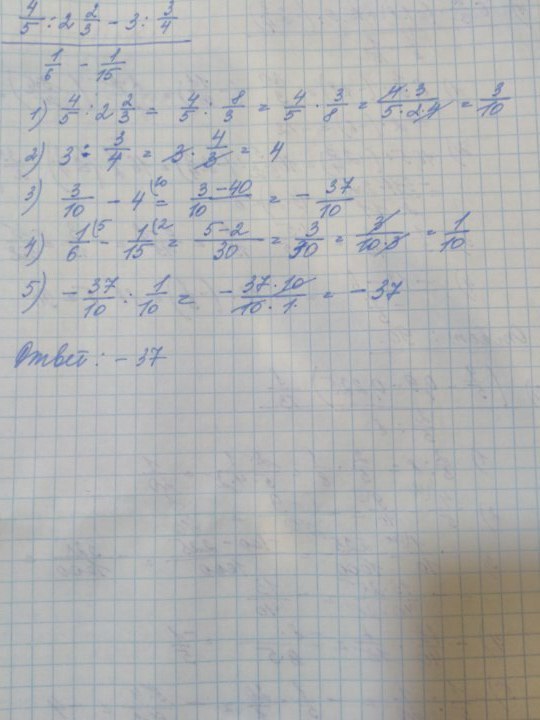 4/5 : 2 2/3 - 3 : 3/4
1/6 - 1/15
1) 4/5 : 2 2/3 = 4/5 : 8/3 = 4/5 · 3/8 = 4·3/5·2·4 = 3/10
2) 3 : 3/4 = 3 · 4/3 = 4
3) 3/10 - 4(10 = 3-40/10 = - 37/10
4) 1/6(5 - 1/15(2 = 5-2/30 = 3/30 = 3/10·3 = 1/10
5) - 37/10 : 1/10 = - 37·10/10·1 = - 37
Ответ: - 37